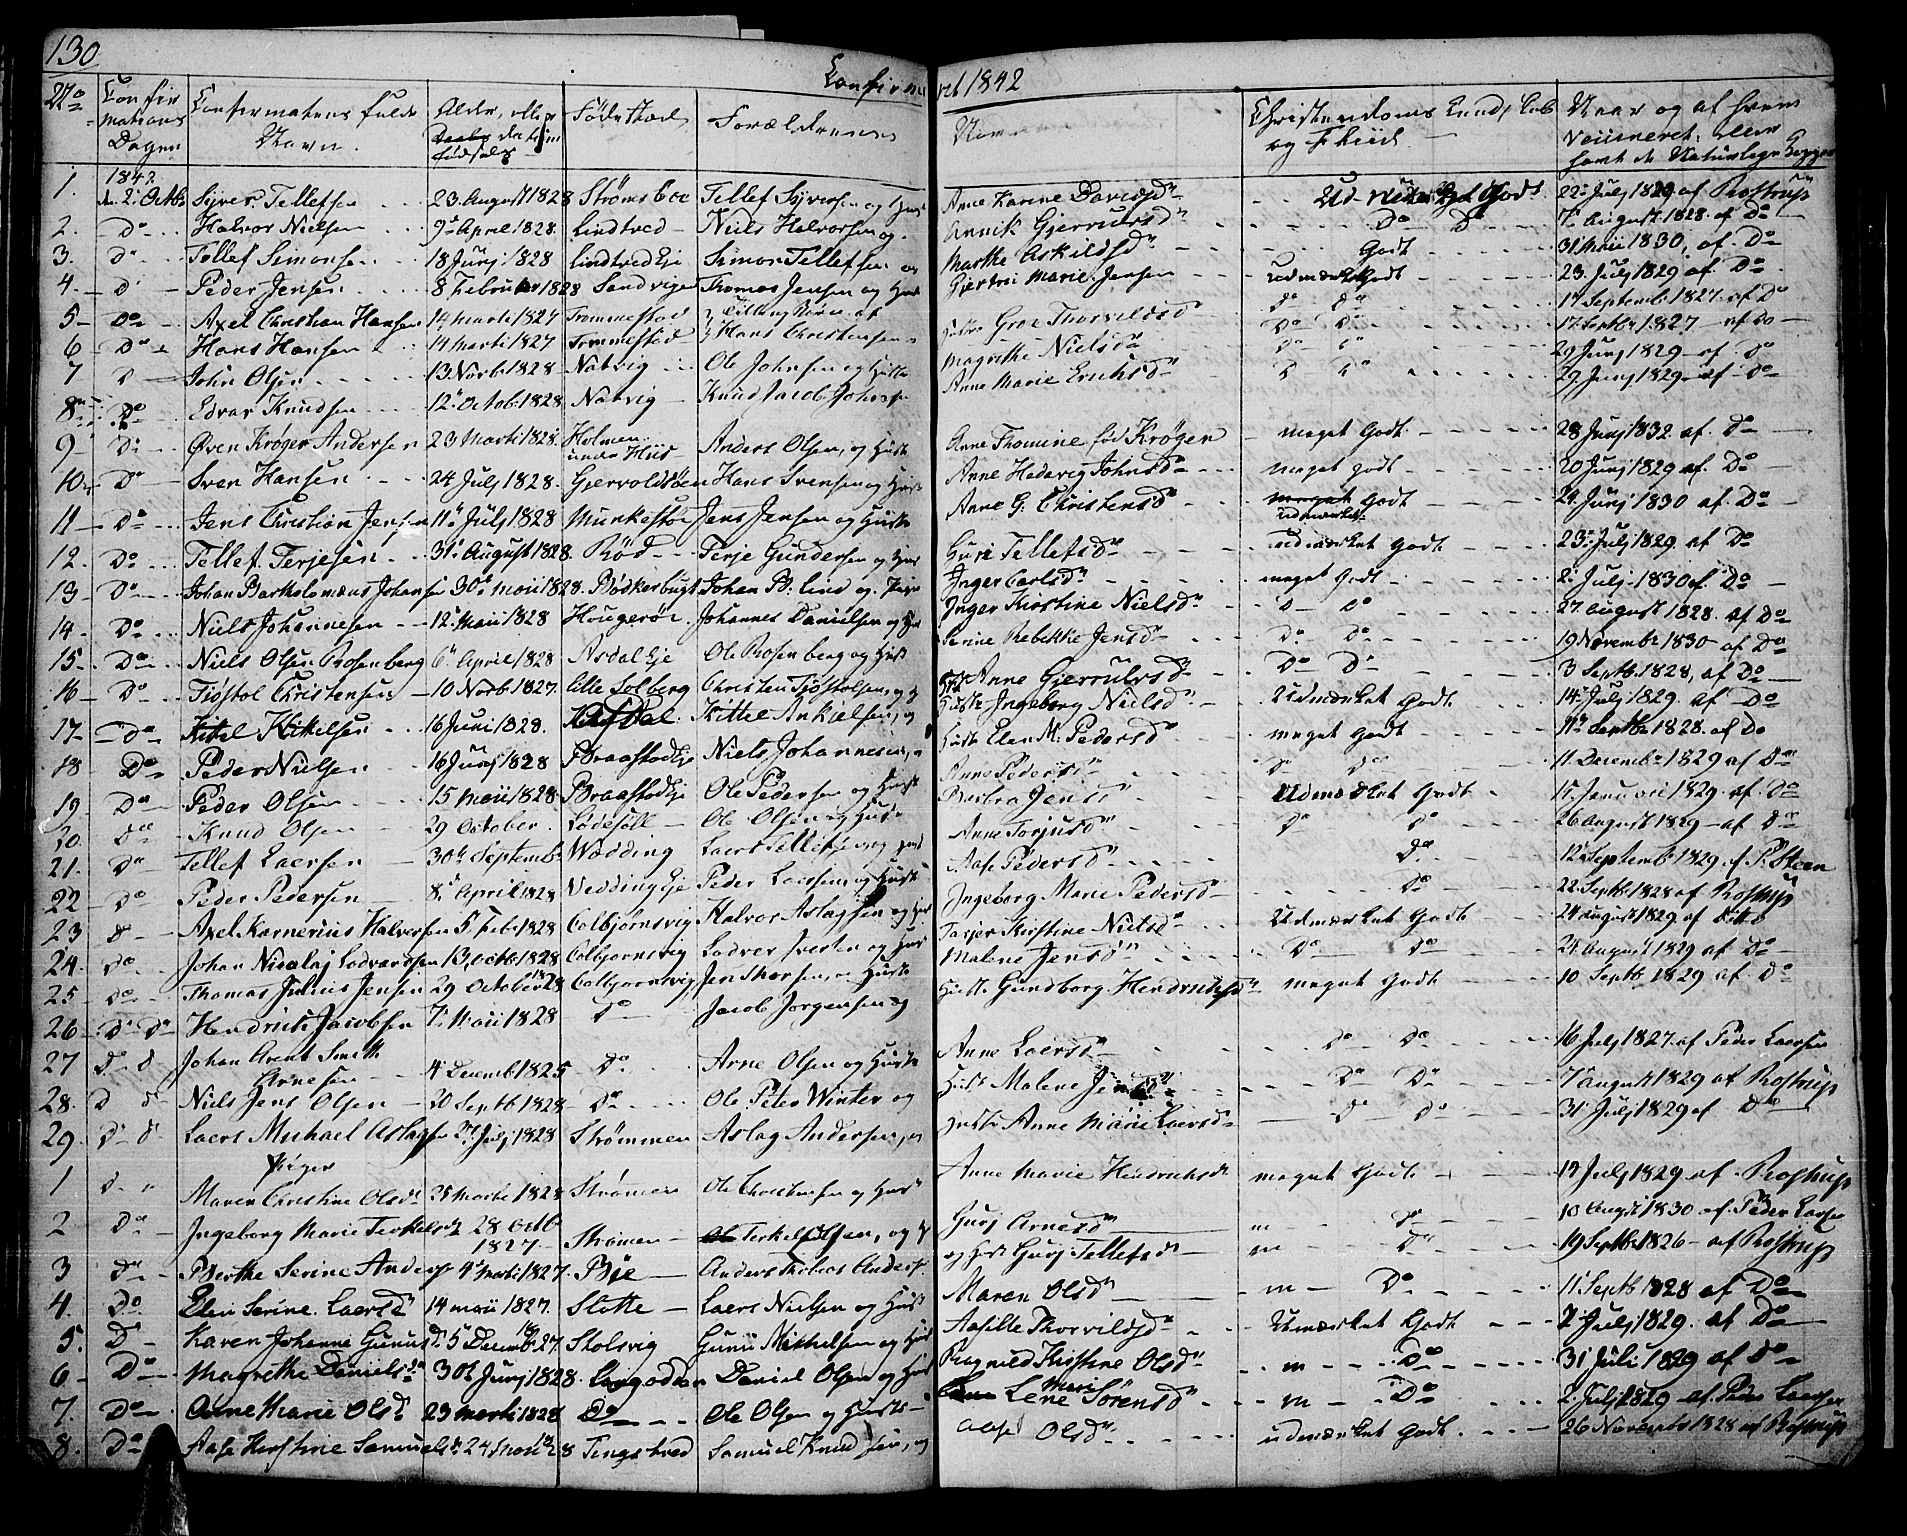 130
Confirme
ret 1842
No
Confir
mations
Dagen
Confirmatens fulde
Navn.
Alder, eller
Daabs datum
fødsels
Fødestæd
Forældrenes
Navn
Christendoms Kundskab
og Fliid
Naar og af hvem
vaccineret, eller
samt de Naturlige Kopper
1. 1842 d. 2. Octb. Syver Tellefsen 23 August 1828 Strømsboe Tellef Syversen og Hust Anne Karine Davidsd. Ud-mærket Godt 22 Julj 1829 af Rostrup
2. Do Halvor Nielsen 9 April 1828 Lindtved Niels Halvorsen og Annik Gjerrulsd. Do Do 7 August 1828. af Do
3. Do Tellef Simonsen 18 Junj 1828 Lindtved Eje Simon Tellefsen og Marthe Askildsd. Godt 31 Maii 1830, af Do
4 Do Peder Jensen 8 Februar 1828 Sandvigen Thomas Jensen og Hust Gjertru Marie Jensen udmærket Godt 23 Julj 1829 af Do
5 Do Axel Christian Hansen 14 Marti 1827 Trommestad Tvilling Børn af Hustr Groe Thorvildsd. Do Do 17 Septemb 1827 af Do
6 Do Hans Hansen 14 Marti 1827 Trommestad Hans Christensen Do Do 17 Septbr 1827 af Do
7 Do John Olsen 13. Novb 1828 Natvig Ole Johnsen og Hustr Magrethe Nielsd. Do Do 29 Junj 1829 af Do
8 Do Edvar Knudsen 12. Octob. 1828 Natvig Knud Jacob Johns Anne Marie Erichsd. Do Do 29 Junj 1829 af Do
9 Do Øven Krøger Andersen 23 Marti 1828. Holmen under Hiis Anders Olsen, og Hust Anne Thomine fød Krøger meget Godt 28 Junj 1832 af Do
10 Do Sven Hansen 24 Julj 1828. Gjervoldsøen Hans Svensen og Hust Anne Hedevig Johnsd. meget Godt 20 Junj 1829 af. Do
11 Do Jens Christian Jensen 11 Julj 1828 Munkestøe Jens Jensen og Hustr Anne G. Christensd. meget udmærket Godt 24. Junj 1830 af Do
12. Do Tellef Terjesen 31 August 1828. Rød Terje Gundersen og Hust Guri Tellefsd. udmærket Godt 23 Julj 1829. af Do
13 Do Johan Bartholomæus Johansen 30 Maii 1828. Bødkerbugt Johan B. Lind og Pige Inger Carlsd. meget Godt 2 Julj 1830 af Do
14. Do Niels Johannesen 12 Maii 1828 Hougerøe Johannes Danielsen og Hust Inger Kirstine Nielsd. Do Do 27 August 1828. af Do
15. Do Niels Olsen Rosenberg 6 April 1828 Asdal Eje Ole Rosenberg og Hust Serine Rebekke Jensd. Do Do 19 Novembr 1830 af Do
16 Do Tiøstol Christensen 10 Novb 1827. Lille Solberg Christen Tiøstolsen, og Hst Anne Gjerrulsd. Do Do 3 Septb. 1828, af Do
17 Do Kitel Kitelsen 16 Juni 1828. Kittel Ankielsen, og Hustr Ingeborg Nielsd. Udmærket Godt 14 Julj 1829. af Do
18 Do Peder Nielsen 16 Junj 1828 Braastad Eje Niels Johannesen, Hustr Elen M. Pedersd. meget Godt 11 Septbr 1828. af Do
19 Do Peder Olsen 15 Maii 1828 Braastad Eje Ole Pedersen og Hust Anne Pedersd. Do Do 11 Decembr 1829 af Do
20. Do Knud Olsen 29 October. Lødesøll Ole Olsen og Hust Barbra Jensd. Udmærket Godt 17 Januarii 1829. af Do
21. Do Tellef Laersen 30 Septemb Wedding Laers Tellefsen og Hust Anne Torjusd. Do Do 26 August 1829 af Do
22 Do Peder Pedersen 8 April 1828 Vedding Eje Peder Larssen, og Hust Aase Pedersd. Do 12 Septemb 1829. af P. Steen
23 Do Axel Karnerius Halversen 5 Feb 1828 Colbjørnsvig Halvor Aslagsen og Hust Ingeborg Marie Pedersd. Do 22. Septb 1828 af Rostrup
24. Do Johan Nicolaj Lodvardsen 13. Octb 1828 Colbjørnsvig Lodver Iversen og Hust Torjor Kirstine Nielsd. Udmærket Godt 24 August 1829. af ditto
25 Do Thomas Julius Jensen 29 October 1828 Colbjørnsvig Jens Thorsen, og Hustr Malene Jensd. Do Do 24 August 1829. af Do
26 Do Do Hendrich Jacobsen 7. Maii 1828 Do Jacob Jørgensen og Hustr Gundborg Hendrichsd. meget Godt 10 Septb 1829 af Do
27 Do Do Johan Arent Smith Arnesen 4 Decemb 1825 Do Arne Olsen og Hustr Anne Laersd. Do Do 16 Julj 1827. af Peder Laersen
28. Do Do Niels Jens Olsen 20 Septb 1828 Do Ole Peter Winter og Hustr Malene Do Do 7 August 1829 af Rostrup
29. Do Do Laers Michael Aslagsen Julj 1828 Strømmen Aslag Andersen, og Hustr Anne Marie Laersd. Do Do 31 Julj 1829 af Do
Piger
1 Do Maren Christine Olsd. 25 Marti 1828 Strømen Ole Christensen og Hust Anne Marie Hendrichsd. meget Godt 17 Julj 1829 af Rostrup
2 Do Ingeborg Marie Terkelsd. 28 Octb 1827 Strømen Terkel Olsen, og Gurj Arnesd. m Do 10 Augst 1830 af Peder Larsen
3 Do Berthe Serine Anders 4 Marti 1827. Bie Anders Thobias Anders og Hust Gurj Tellefsd. m Do 19 Septbr 1826 af Rostrup
4. Do Elen Serine Laersd. 14 Maii 1827. Slotte Laers Nielsen og Hust Maren Olsd. m Do 11 Septb 1828 af Do
5. Do Karen Johanne Gunusd. 5 Decemb 1827. Stølsvig Gunu Michelsen og Hust Aasille Thorvildsd. Udmærket Godt 7 Julj 1829. af Do
6 Do Magrethe Danielsd. 30 Junj 1828. Daniel Olsen og Hust Ragnild Kirstine Olsd. m Do 31 Juli 1829 af Do
7. Do Anne Marie Olsd. 23 Marti 1828 Do Ole Olsen og Hustr Lene Mari Sørensd. m Do 2 Julj 1829 af Peder Laersen
8. Do Aase Kirstine Samuels 24 1828 Tingstved Samuel Knudsen, og Aase Olsd. udmærket Godt. 26 November 1828 af Rostrup